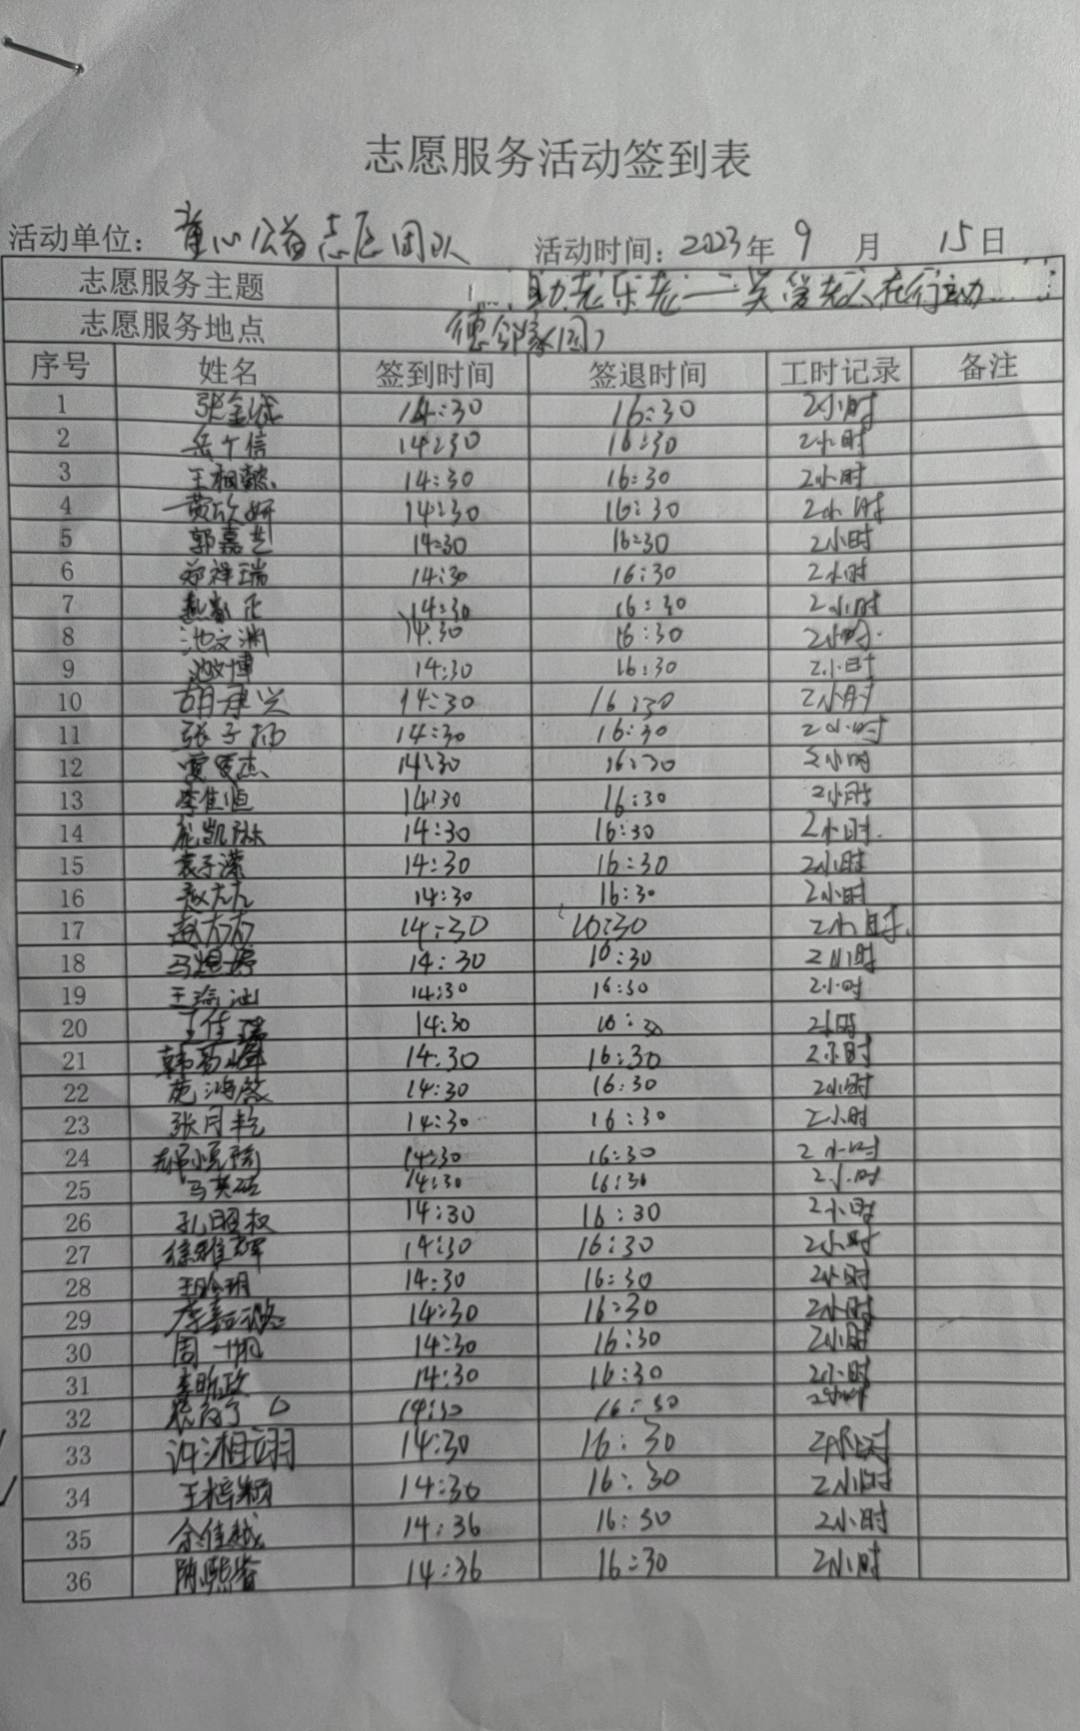 志愿服务活动签到表
活动单位：童心公益志愿团队 活动时间：2023年 9 月 15日
志愿服务主题 助老乐老——关爱老人在行动
志愿服务地点 德邻家园
序号 姓名 签到时间 签退时间 工时记录 备注
1 张金 14:30 16:30 2小时
2 岳 信 14:30 16:30 2小时
3 王相懿 14:30 16:30 2小时
4 黄欣妍 14:30 16:30 2小时
5 郭嘉艺 14:30 16:30 2小时
6 郑祥瑞 14:30 16:30 2小时
7 14:30 16:30 2小时
8 池文渊 14:30 16:30 2小时
9 池文博 14:30 16:30 2小时
10 胡承兴 14:30 16:30 2小时
11 张子扬 14:30 16:30 2小时
12 14:30 16:30 2小时
13 李佳恒 14:30 16:30 2小时
14 庞凯琳 14:30 16:30 2小时.
15 袁子潆 14:30 16:30 2小时
16 赵九九 14:30 16:30 2小时
17 赵方方 14:30 16:30 2小时.
18 马煜婷 14:30 16:30 2小时
19 王渝涵 14:30 16:30 2小时
20 王佳瑞 14:30 16:30 2小时
21 韩 峰 14:30 16:30 2小时
22 范鸿啟 14:30 16:30 2小时
23 张月乾 14:30 16:30 2小时
24 14:30 16:30 2小时
25 马英 14:30 16:30 2小时
26 孔昭权 14:30 16:30 2小时
27 徐雅辉 14:30 16:30 2小时
28 王晗玥 14:30 16:30 2小时
29 李嘉潞 14:30 16:30 2小时
30 周一帆 14:30 16:30 2小时
31 李昕政 14:30 16:30 2小时
32 14:30 16:30 2小时
33 许湘翊 14:30 16:30 2小时
34 王梓颖 14:30 16:30 2小时
35 余佳越 14:36 16:30 2小时
36 陈熙睿 14:36 16:30 2小时